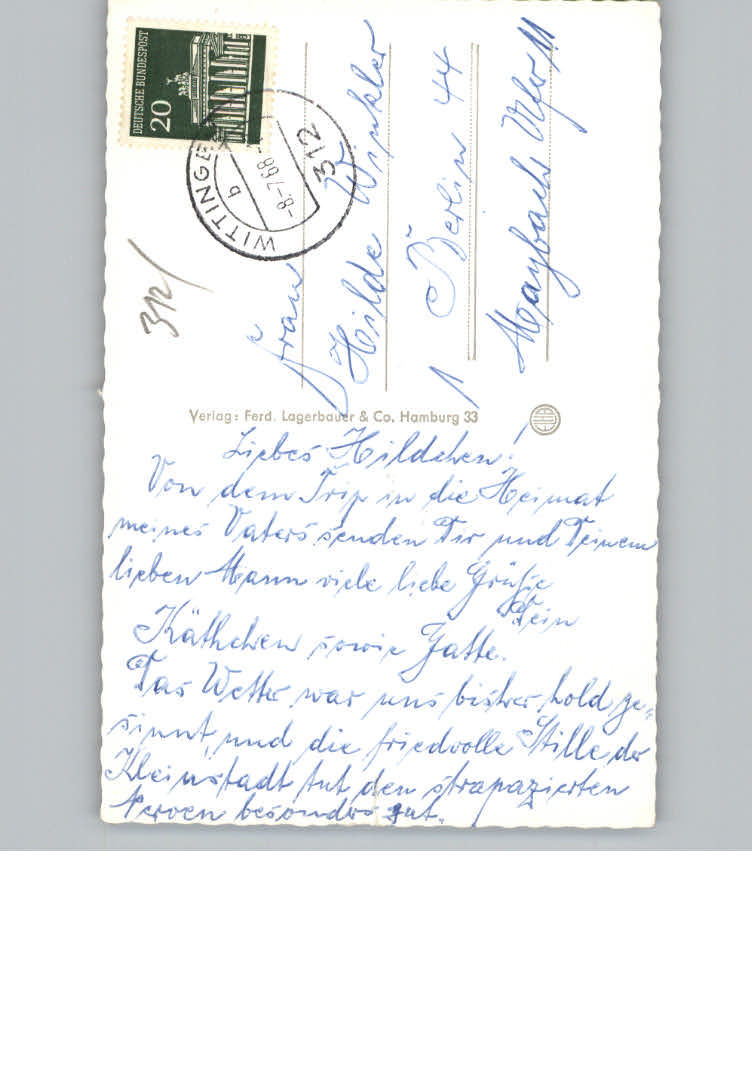 DEUTSCHE BUNDESPOST
20
WITTINGE
b
-8.-7.68-
312
312
Frau
Hilde Winkler
1 Berlin 44
Maybach Ufer 11
Verlag: Ferd. Lagerbauer & Co. Hamburg 33
Liebes Hildchen!
Von dem Trip in die Heimat
meines Vaters senden Dir und Deinem
lieben Mann viele liebe Grüße
Dein
Käthchen sowie Gatte.
Das Wetter war uns bisher hold ge-
sinnt, und die friedvolle Stille der
Kleinstadt tut den strapazierten
Nerven besonders gut.